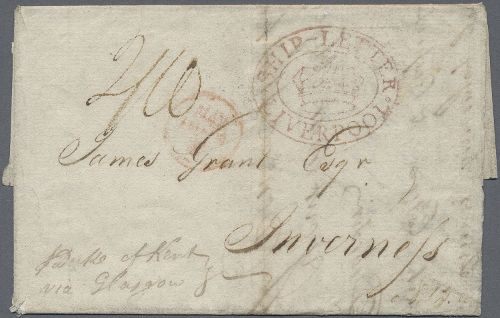 SHIP-LETTER
LIVERPOOL
2/10
MAY
James Grant Esqr
Inverness
p Duke of Kent
via Glasgow